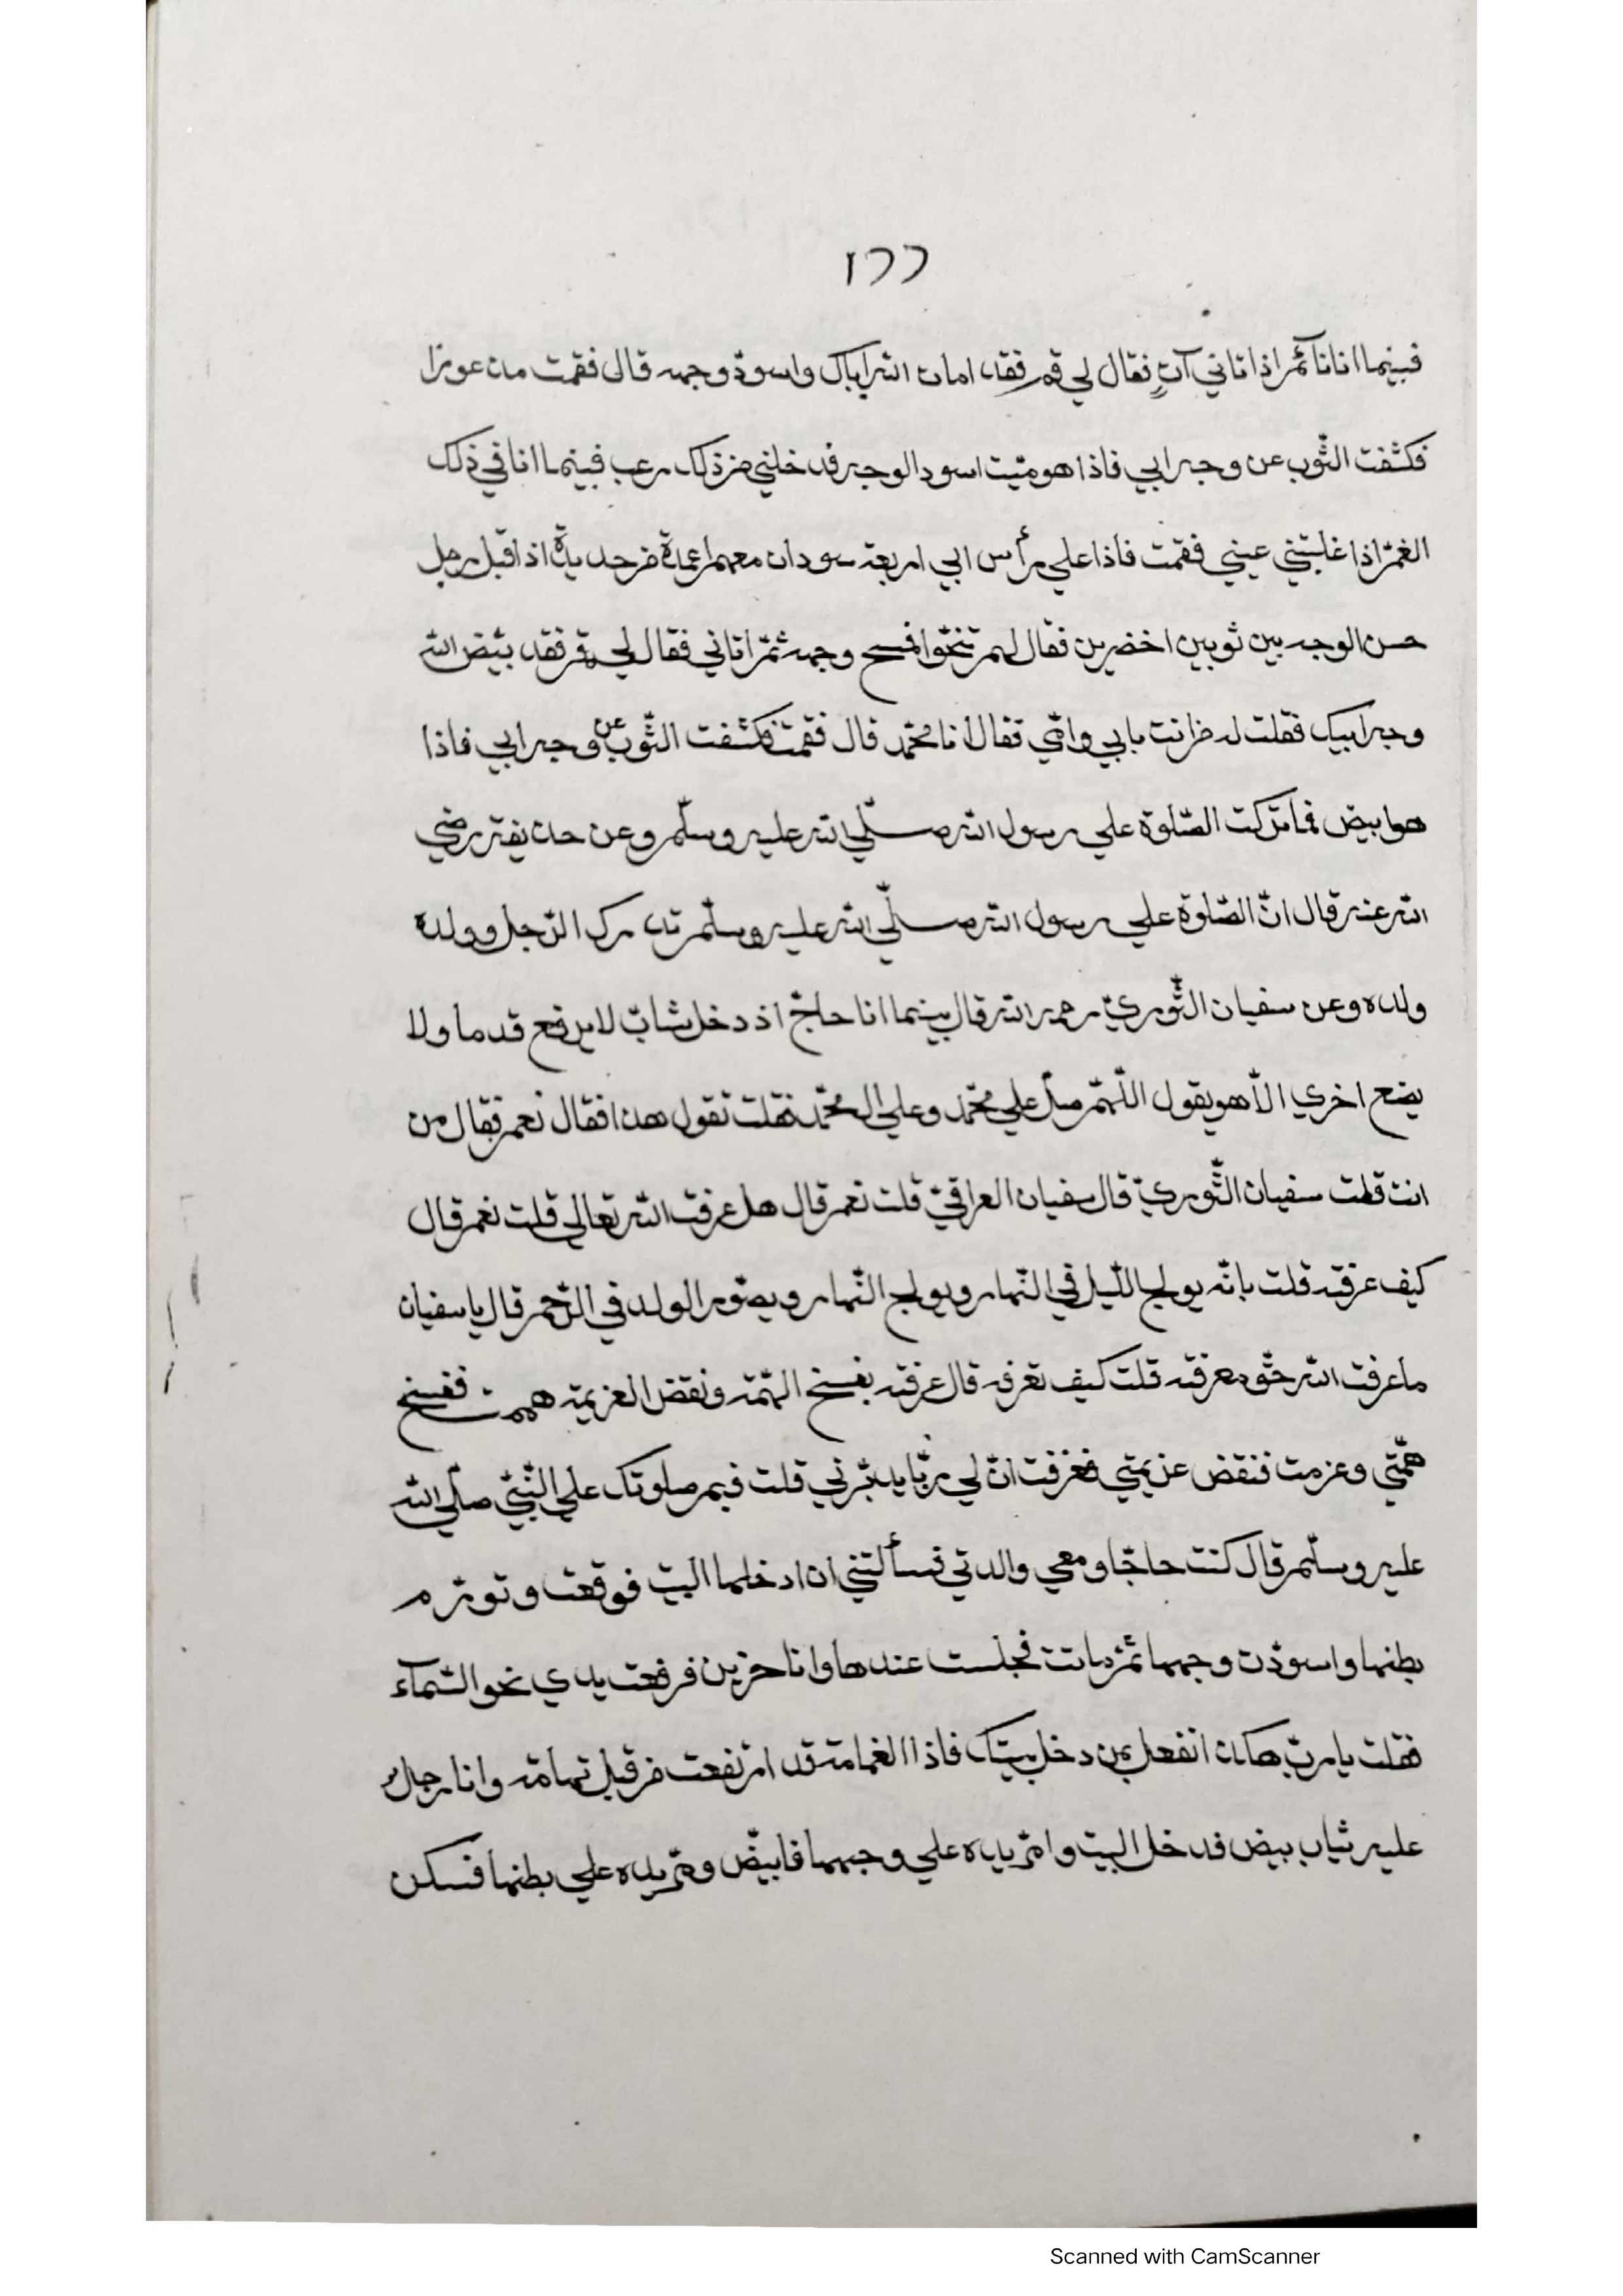 ١٢٢
فبينما انا نائم اذ اتاني آتٍ فقال لي قم فقد امات الله اباك واسودّ وجهه قال فقمت مذعورا
فكشفت الثّوب عن وجه ابي فاذا هو ميّت اسود الوجه فدخلني من ذلك رعب فبينما انا في ذلك
الغمّ اذا غلبتني عيني فقمت فاذا علي رأس ابي اربعة سودان معهم اعمدة من حديد اذا قبل رجل
حسن الوجه بين ثوبين اخضرين فقال لهم تنحّوا فمسح وجهه ثمّ اتاني فقال لي قم فقد بيّض الله
وجه ابيك فقلت له من انت بابي وامّي فقال انا محمّد قال فقمت فكشفت الثّوب عن وجه ابي فاذا
هو ابيض فما تركت الصّلوة علي رسول الله صلّي الله عليه وسلّم وعن حذيفة رضي
الله عنه قال انّ الصّلوة علي رسول الله صلّي الله عليه وسلّم تدرك الرّجل وولده
ولده وعن سفيان الثّوريّ رحمه الله قال بينما انا حاجّ اذ دخل شابّ لا يرفع قدما ولا
يضع اخري الّا هو يقول اللّهمّ صلّ علي محمّد وعلي ال محمّد فقلت تقول هذا فقال نعم فقال من
انت قلت سفيان الثّوريّ قال سفيان العراقيّ قلت نعم قال هل عرفت الله تعالي قلت نعم قال
كيف عرفته قلت بانّه يولج اللّيل في النّهار ويولج النّهار ويصوّر الولد في الرّحم قال يا سفيان
ما عرفت الله حقّ معرفته قلت كيف تعرفه قال عرفته بفسخ الهمّة ونقض العزيمة هممت ففسخ
همّتي وعزمت فنقض عزيمتي فعرفت انّ لي ربّا يدبّرني قلت فبم صلوتك علي النّبيّ صلّي الله
عليه وسلّم قال كنت حاجّا ومعي والدتي فسألتني ان ادخلها البيت فوقعت وتورّم
بطنها واسودّت وجهها ثمّ ماتت فجلست عندها وانا حزين فرفعت يدي نحو السّمآء
فقلت يا ربّ هكذا تفعل بمن دخل بيتك فاذا الغمامة قد ارتفعت من قبل تهامة وانا رجل
عليه ثياب بيض فدخل البيت وامرّ يده علي وجهها فابيضّ ومرّ يده علي بطنها فسكن
Scanned with CamScanner